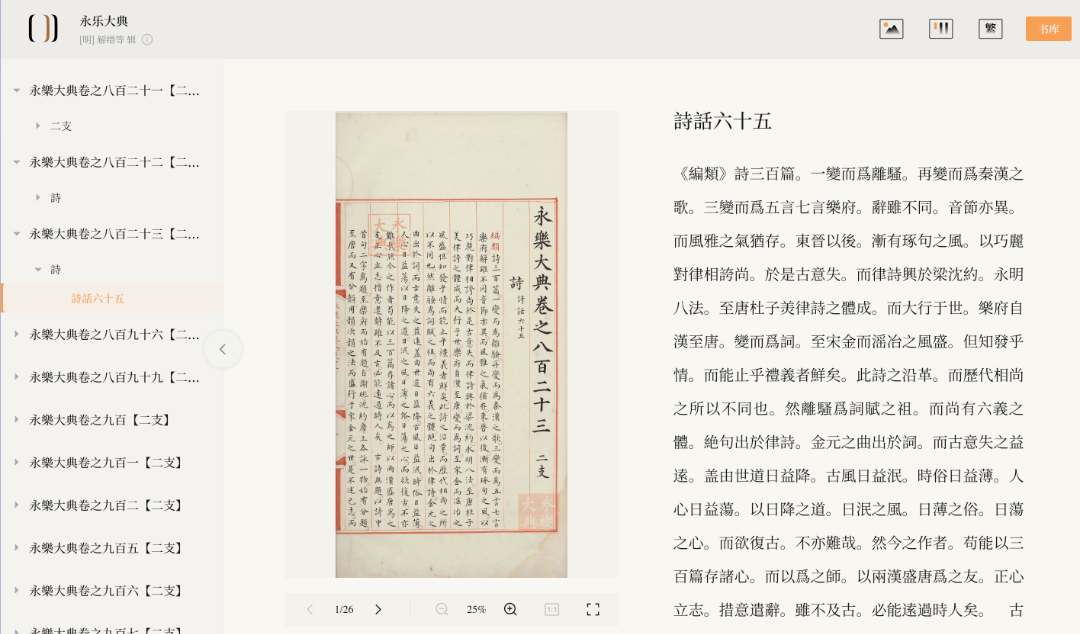 永乐大典
[明] 解缙等 辑
繁
书库
永樂大典卷之八百二十一【二...
二支
永樂大典卷之八百二十二【二...
詩
永樂大典卷之八百二十三【二...
詩
詩話六十五
永樂大典卷之八百九十六【二...
永樂大典卷之八百九十九【二...
永樂大典卷之九百【二支】
永樂大典卷之九百一【二支】
永樂大典卷之九百二【二支】
永樂大典卷之九百五【二支】
永樂大典卷之九百六【二支】
永樂大典卷之九百七【二支】
永樂大典卷之八百二十三 二支
詩 詩話六十五
1/26
25%
1:1
詩話六十五
《編類》詩三百篇。一變而爲離騷。再變而爲秦漢之
歌。三變而爲五言七言樂府。辭雖不同。音節亦異。
而風雅之氣猶存。東晉以後。漸有琢句之風。以巧麗
對律相誇尚。於是古意失。而律詩興於梁沈約。永明
八法。至唐杜子美律詩之體成。而大行于世。樂府自
漢至唐。變而爲詞。至宋金而滛冶之風盛。但知發乎
情。而能止乎禮義者鮮矣。此詩之沿革。而歷代相尚
之所以不同也。然離騷爲詞賦之祖。而尚有六義之
體。絶句出於律詩。金元之曲出於詞。而古意失之益
逺。盖由世道日益降。古風日益泯。時俗日益薄。人
心日益蕩。以日降之道。日泯之風。日薄之俗。日蕩
之心。而欲復古。不亦難哉。然今之作者。苟能以三
百篇存諸心。而以爲之師。以兩漢盛唐爲之友。正心
立志。措意遣辭。雖不及古。必能逺過時人矣。 古